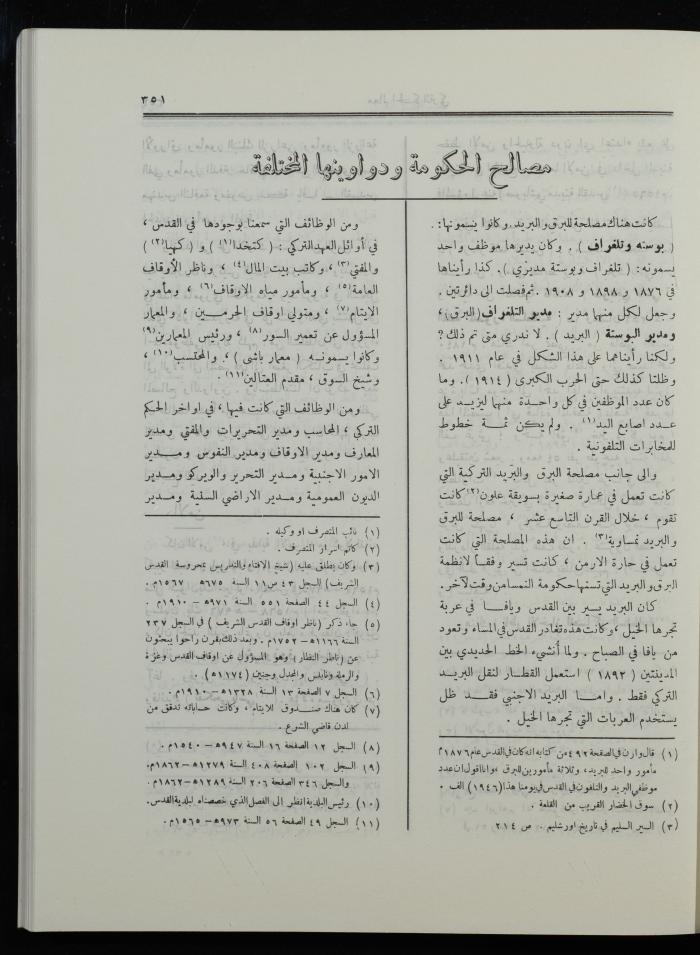 ٣٥١
مصالح الحكومة ودواوينها المختلفة
كانت هناك مصلحة للبرق والبريد. وكانوا يسمونها :
( بوسته وتلغراف ) . وكان يديرها موظف واحد
يسمونه : ( تلغراف وبوستة مديري ) . كذا رأيناها
في ١٨٧٦ و ١٨٩٨ و ١٩٠٨ . ثم فصلت الى دائرتين .
وجعل لكل منهما مدير : مدير التلغراف (البرق) ،
ومدير البوستة ( البريد ) . لا ندري متى تم ذلك ؟
ولكنا رأيناهما على هذا الشكل في عام ١٩١١ .
وظلتا كذلك حتى الحرب الكبرى ( ١٩١٤ ) . وما
كان عدد الموظفين في كل واحدة منهما ليزيد على
عدد اصابع اليد (١) . ولم يكن ثمة خطوط
للمخابرات التلفونية .
والى جانب مصلحة البرق والبريد التركية التي
كانت تعمل في عمارة صغيرة بسويقة علون (٢) كانت
تقوم ، خلال القرن التاسع عشر ، مصلحة للبرق
والبريد نمساوية (٣) . ان هذه المصلحة التي كانت
تعمل في حارة الارمن ، كانت تسير وفقاً لانظمة
البرق والبريد التي تسنها حكومة النمسا من وقت لآخر .
كان البريد يسير بين القدس ويافا في عربة
تجرها الخيل ، وكانت هذه تغادر القدس في المساء وتعود
من يافا في الصباح . ولما أنشيء الخط الحديدي بين
المدينتين ( ١٨٩٢ ) استعمل القطار لنقل البريد
التركي فقط . واما البريد الاجنبي فقد ظل
يستخدم العربات التي تجرها الخيل .
(١) قال وارن في الصفحة ٤٩٢ من كتابه انه كان في القدس عام ١٨٧٦ م
مأمور واحد للبريد ، وثلاثة مأمورين للبرق ، وانا اقول ان عدد
موظفي البريد والتلفون في القدس في يومنا هذا (١٩٤٦) الف .
(٢) سوق الخضار القريب من القلعة .
(٣) السير السليم في تاريخ اورشليم . ص ٢١٤
ومن الوظائف التي سمعنا بوجودها في القدس ،
في أوائل العهد التركي : ( كتخدا (١) ) و ( كهيا (٢) )
والمفتي (٣) ، وكاتب بيت المال (٤) ، وناظر الأوقاف
العامة (٥) ، ومأمور مياه الاوقاف (٦) ، ومأمور
الايتام (٧) ، ومتولي اوقاف الحرمين ، والمعمار
المسؤول عن تعمير السور (٨) ، ورئيس المعمارين (٩)
وكانوا يسمونه ( معمار باشي ) ، والمحتسب (١٠) ،
وشيخ السوق ، مقدم العتالين (١١) .
ومن الوظائف التي كانت فيها ، في اواخر الحكم
التركي ، المحاسب ومدير التحريرات والمفتي ومدير
المعارف ومدير الاوقاف ومدير النفوس ومدير
الامور الاجنبية ومدير التحرير والويركو ومدير
الديون العمومية ومدير الاراضي السنية ومدير
(١) نائب المتصرف او وكيله .
(٢) كاتم اسرار المتصرف .
(٣) وكان يطلق عليه (شيخ الافتاء والتدريس بمحروسة القدس
الشريف) السجل ٤٣ ص ١١ السنة ٩٧٥ھ ١٥٦٧م .
(٤) السجل ٤٤ الصفحة ٥٥١ السنة ٩٧١ھ – ١٩١٠م .
(٥) جاء ذكر (ناظر اوقاف القدس الشريف ) في السجل ٢٣٧
السنة ١١٦٦ھ – ١٧٥٢م . وبعد ذلك بقرن راحوا يبحثون
عن (ناظر النظار) وهو المسؤول عن اوقاف القدس وغزة
والرملة ونابلس والمجدل وجنين (١١٧٤ھ) .
(٦) السجل ٧ الصفحة ١٣ السنة ١٣٢٨ھ – ١٩١٠م .
(٧) كان هناك صندوق للايتام ، وكانت حساباته تدقق من
لدن قاضي الشرع .
(٨) السجل ١٢ الصفحة ١٦ السنة ٩٤٧ھ – ١٥٤٠م .
(٩) السجل ١٠٢ الصفحة ٤٠٨ السنة ١٢٧٩ھ – ١٨٦٢م .
والسجل ٣٤٦ الصفحة ٢٠٦ السنة ١٢٨٩ھ – ١٨٦٢م .
(١٠) رئيس البلدية انظر الى الفصل الذي خصصناه لبلدية القدس .
(١١) السجل ٤٩ الصفحة ٥٦ السنة ٩٧٣ھ – ١٥٦٥م .